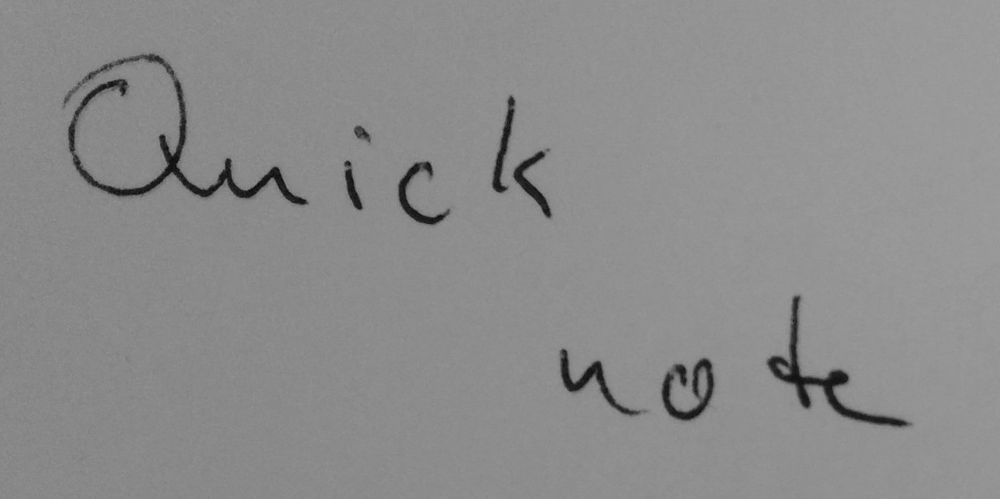 Quick
note